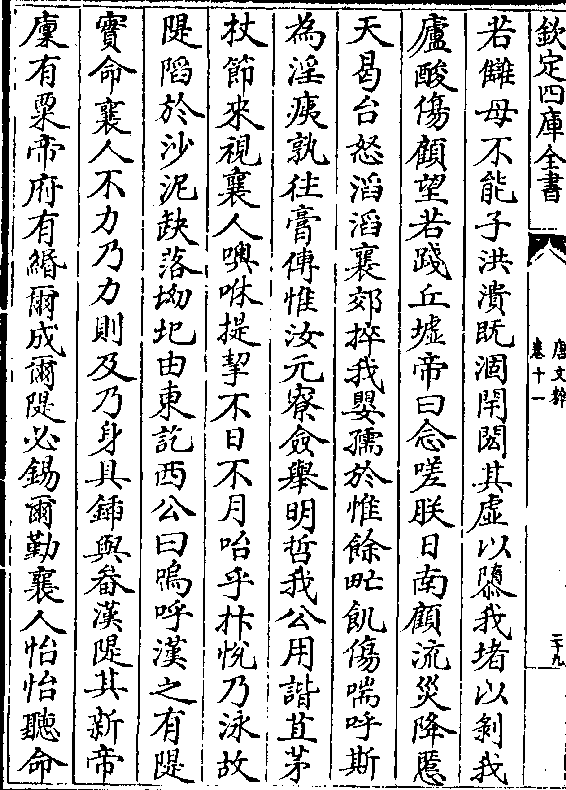 欽定四庫全書
唐文粹
卷十一
二十九
若讎母不能子洪潰既涸閈閎其虛以隳我堵以剝我
廬酸傷顧望若踐丘墟帝曰念嗟朕日南顧流災降慝
天曷台怒滔滔襄郊捽我嬰孺於惟餘甿飢傷喘呼斯
為淫痍孰往膏傅惟汝元寮僉舉明哲我公用諧苴茅
杖節來視襄人噢咻提挈不日不月咍乎抃悅乃泳故
隄陷於沙泥缺落坳圯由東訖西公曰嗚呼漢之有隄
實命襄人不力乃力則及乃身具鍤與畚漢隄其新帝
廩有粟帝府有緡爾成爾隄必錫爾勤襄人怡怡聽命